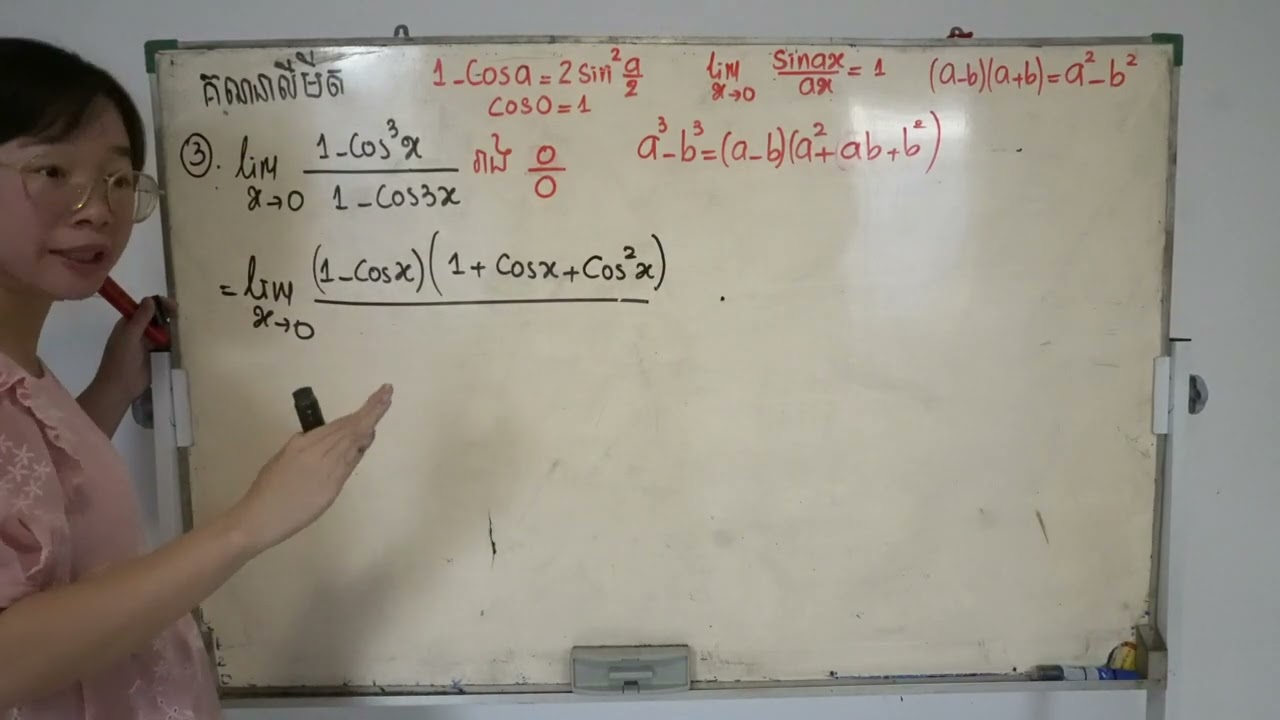 គណនាលីមីត
1-Cosa = 2sin²a/2
coso = 1
lim x→0 sinax/ax = 1
(a-b)(a+b) = a²-b²
③. lim x→0 1-Cos³x / 1-Cos3x រាង 0/0
a³-b³ = (a-b)(a²+ab+b²)
= lim x→0 (1-Cosx)(1+Cosx+Cos²x)